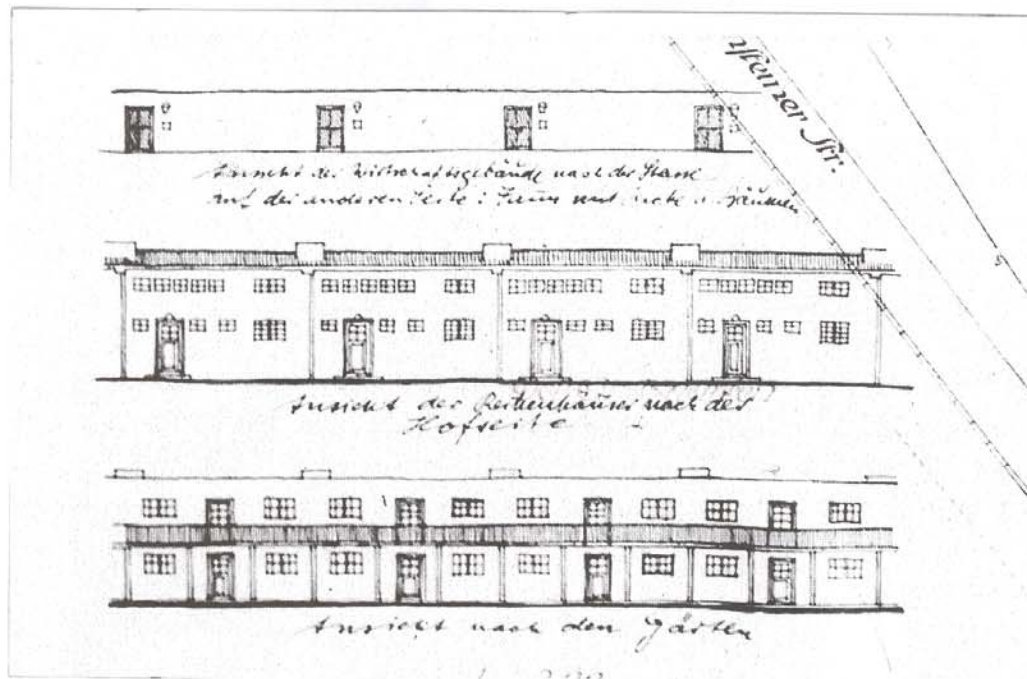 Ansicht der Wirtschaftsgebäude nach der Strasse
auf der anderen Seite : Zaun mit Hecke u. Bäumen
Ansicht der Reihenhäuser nach der
Hofseite
Ansicht nach den Gärten
Str.